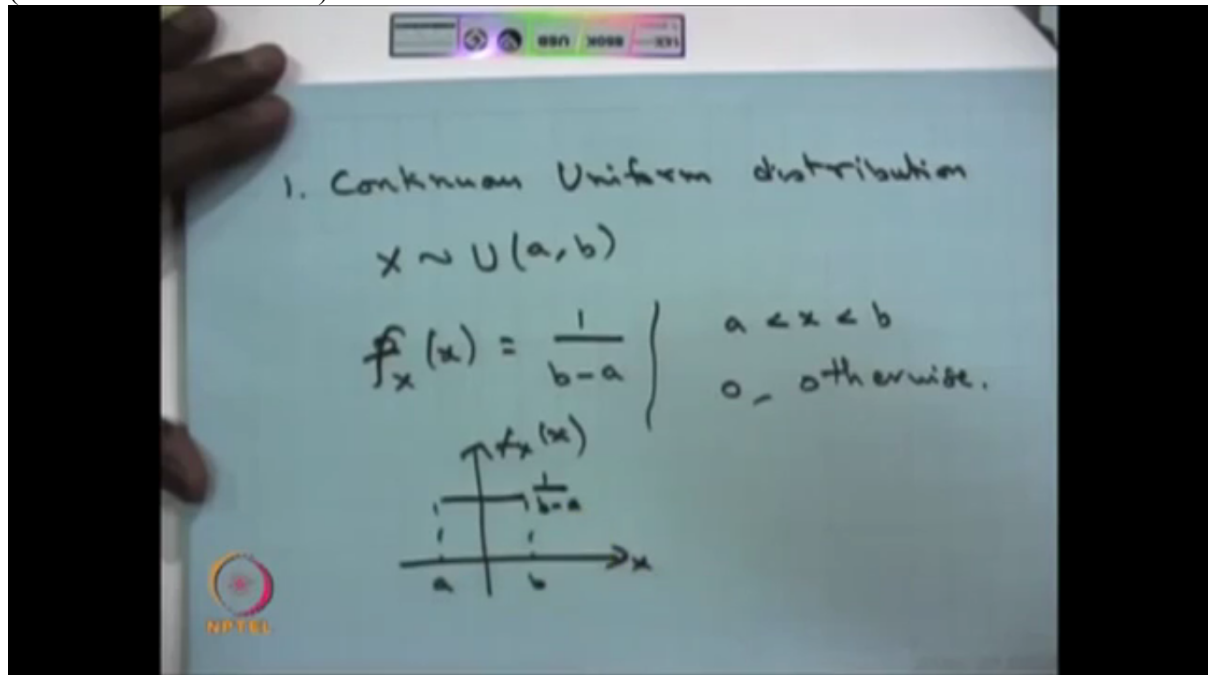 1. Continuous Uniform distribution
X ~ U(a, b)
f_X(x) = 1/(b-a) | a < x < b
0, otherwise.
f_X(x)
1/(b-a)
x
a b
NPTEL